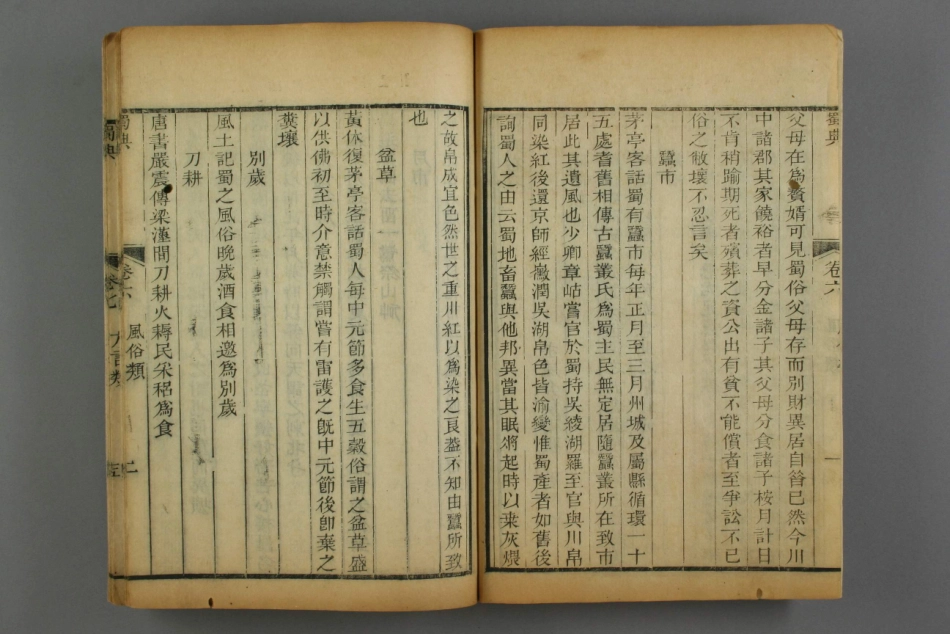 蜀典
卷六
父母在爲贅婿可見蜀俗父母存而別財異居自昝已然今川
中諸郡其家饒裕者早分金諸子其父母分食諸子桉月計日
不肯稍踰期死者殯葬之資公出有貧不能償者至爭訟不已
俗之敝壞不忍言矣
蠶市
茅亭客話蜀有蠶市每年正月至三月州城及屬縣循環一十
五處耆舊相傳古蠶叢氏爲蜀主民無定居隨蠶叢所在致市
居此其遺風也少卿章岵嘗官於蜀持吳綾湖羅至官與川帛
同染紅後還京師經黴潤吳湖帛色皆渝變惟蜀產者如舊後
詢蜀人之由云蜀地畜蠶與他邦異當其眠將起時以桒灰煨
之故帛成宜色然世之重川紅以爲染之良蓋不知由蠶所致
也
盆草
黃休復茅亭客話蜀人每中元節多食生五穀俗謂之盆草盛
以供佛初至時介意禁觸謂嘗有雷護之旣中元節後卽棄之
糞壤
別歲
風土記蜀之風俗晚歲酒食相邀爲別歲
刀耕
唐書嚴震傳梁漢間刀耕火耨民采稆爲食
蜀典
卷六
風俗類
二
蜀典
卷七
方言類